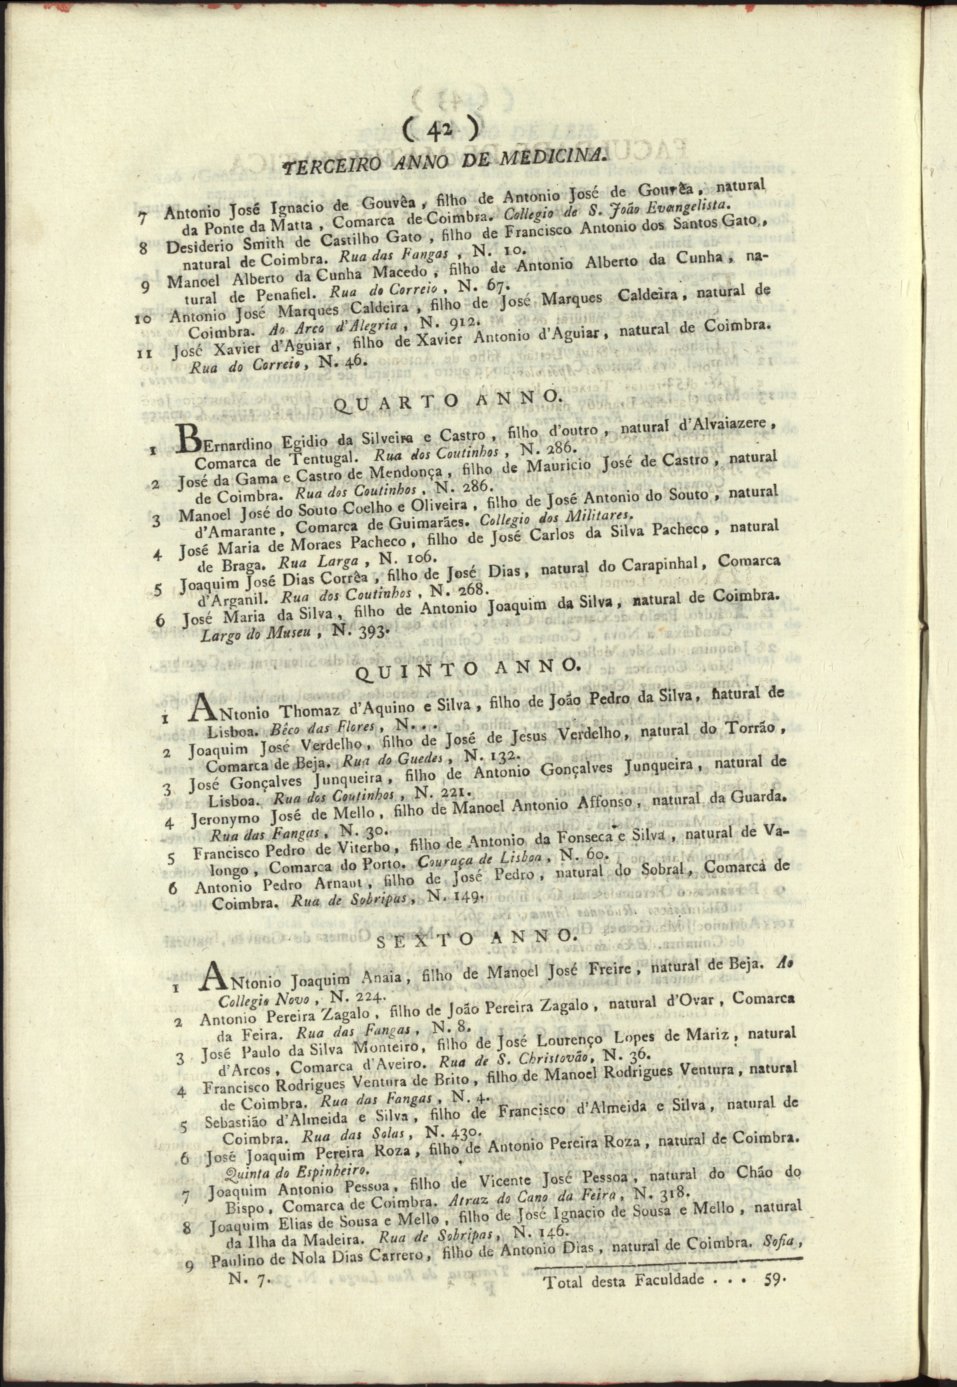 ( 42 )
TERCEIRO ANNO DE MEDICINA.
7 Antonio José Ignacio de Gouvêa, filho de Antonio José de Gouvêa, natural
da Ponte da Matta, Comarca de Coimbra. Collegio de S. João Evangelista.
8 Desiderio Smith de Castilho Gato, filho de Francisco Antonio dos Santos Gato,
natural de Coimbra. Rua das Fangas, N. 10.
9 Manoel Alberto da Cunha Macedo, filho de Antonio Alberto da Cunha, na-
tural de Penafiel. Rua do Correio, N. 67.
10 Antonio José Marques Caldeira, filho de José Marques Caldeira, natural de
Coimbra. Ao Arco d'Alegria, N. 912.
11 José Xavier d'Aguiar, filho de Xavier Antonio d'Aguiar, natural de Coimbra.
Rua do Correio, N. 46.
QUARTO ANNO.
1 BErnardino Egidio da Silveira e Castro, filho d'outro, natural d'Alvaiazere,
Comarca de Tentugal. Rua dos Coutinhos, N. 286.
2 José da Gama e Castro de Mendonça, filho de Mauricio José de Castro, natural
de Coimbra. Rua dos Coutinhos, N. 286.
3 Manoel José do Souto Coelho e Oliveira, filho de José Antonio do Souto, natural
d'Amarante, Comarca de Guimarães. Collegio dos Militares.
4 José Maria de Moraes Pacheco, filho de José Carlos da Silva Pacheco, natural
de Braga. Rua Larga, N. 106.
5 Joaquim José Dias Corrêa, filho de José Dias, natural do Carapinhal, Comarca
d'Arganil. Rua dos Coutinhos, N. 268.
6 José Maria da Silva, filho de Antonio Joaquim da Silva, natural de Coimbra.
Largo do Museu, N. 393.
QUINTO ANNO.
1 ANtonio Thomaz d'Aquino e Silva, filho de João Pedro da Silva, natural de
Lisboa. Bêco das Flores, N. . .
2 Joaquim José Verdelho, filho de José de Jesus Verdelho, natural do Torrão,
Comarca de Beja. Rua do Guedes, N. 132.
3 José Gonçalves Junqueira, filho de Antonio Gonçalves Junqueira, natural de
Lisboa. Rua dos Coutinhos, N. 221.
4 Jeronymo José de Mello, filho de Manoel Antonio Affonso, natural da Guarda.
Rua das Fangas, N. 30.
5 Francisco Pedro de Viterbo, filho de Antonio da Fonseca e Silva, natural de Va-
longo, Comarca do Porto. Couraça de Lisboa, N. 60.
6 Antonio Pedro Arnaut, filho de José Pedro, natural do Sobral, Comarca de
Coimbra. Rua de Sobripas, N. 149.
SEXTO ANNO.
1 ANtonio Joaquim Anaia, filho de Manoel José Freire, natural de Beja. Ao
Collegio Novo, N. 224.
2 Antonio Pereira Zagalo, filho de João Pereira Zagalo, natural d'Ovar, Comarca
da Feira. Rua das Fangas, N. 8.
3 José Paulo da Silva Monteiro, filho de José Lourenço Lopes de Mariz, natural
d'Arcos, Comarca d'Aveiro. Rua de S. Christovão, N. 36.
4 Francisco Rodrigues Ventura de Brito, filho de Manoel Rodrigues Ventura, natural
de Coimbra. Rua das Fangas, N. 4.
5 Sebastião d'Almeida e Silva, filho de Francisco d'Almeida e Silva, natural de
Coimbra. Rua das Solas, N. 430.
6 José Joaquim Pereira Roza, filho de Antonio Pereira Roza, natural de Coimbra.
Quinta do Espinheiro.
7 Joaquim Antonio Pessoa, filho de Vicente José Pessoa, natural do Chão do
Bispo, Comarca de Coimbra. Atraz do Cano da Feira, N. 318.
8 Joaquim Elias de Sousa e Mello, filho de José Ignacio de Sousa e Mello, natural
da Ilha da Madeira. Rua de Sobripas, N. 146.
9 Paulino de Nola Dias Carrero, filho de Antonio Dias, natural de Coimbra. Sofia,
N. 7.
Total desta Faculdade . . . 59.